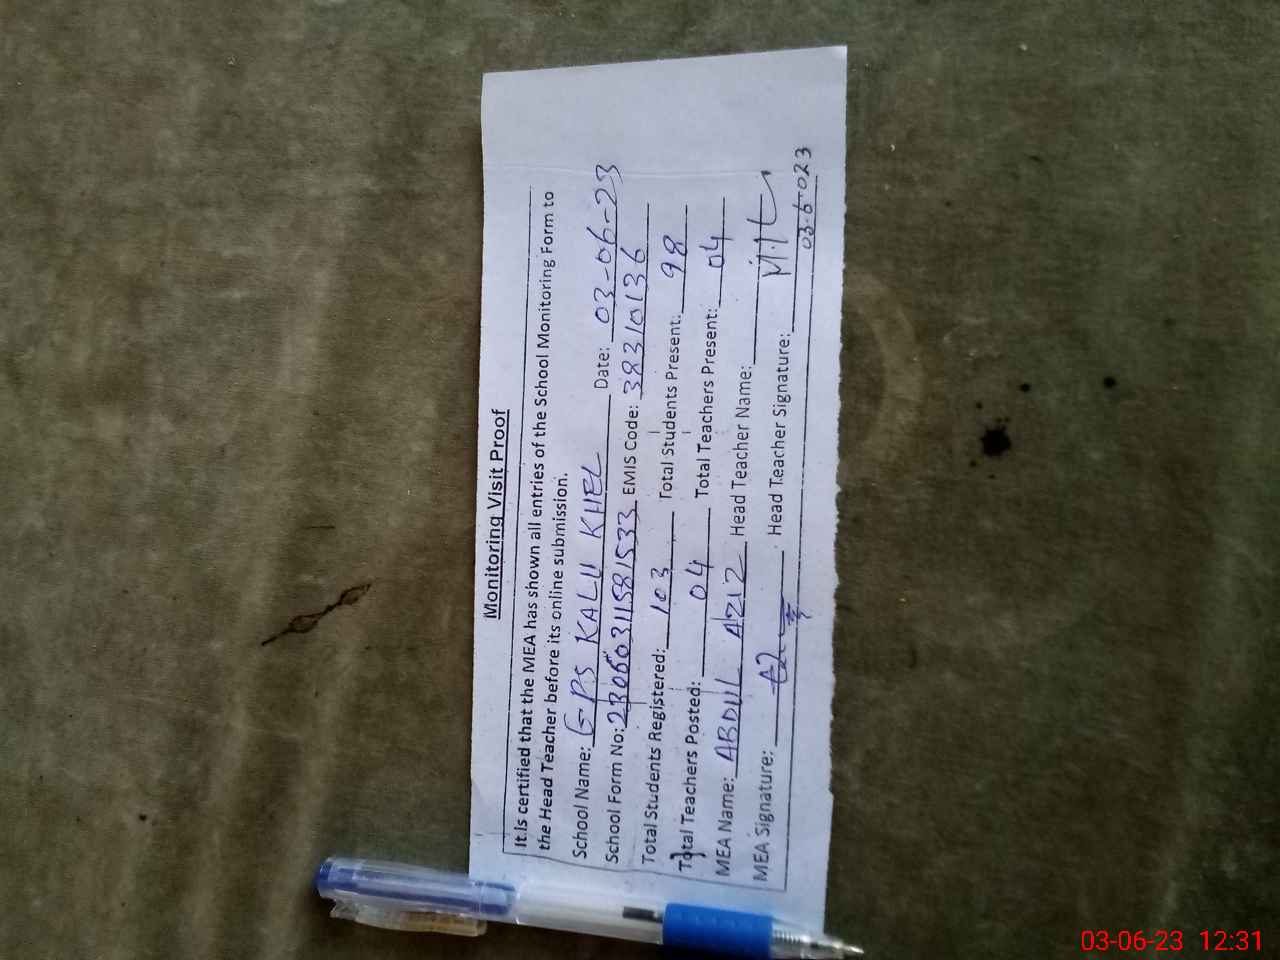 Monitoring Visit Proof
It is certified that the MEA has shown all entries of the School Monitoring Form to
the Head Teacher before its online submission.
School Name: GPS KALU KHEL Date: 03-06-23
School Form No: 23060311581533 EMIS Code: 38310136
Total Students Registered: 103 Total Students Present: 98
Total Teachers Posted: 04 Total Teachers Present: 04
MEA Name: ABDUL AZIZ Head Teacher Name:
MEA Signature: Head Teacher Signature:
03-6-023
03-06-23 12:31